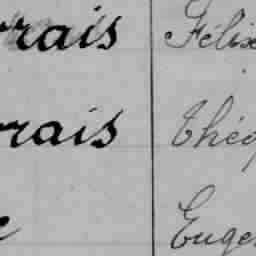 rrais Félix
rrais Théo
e Euge